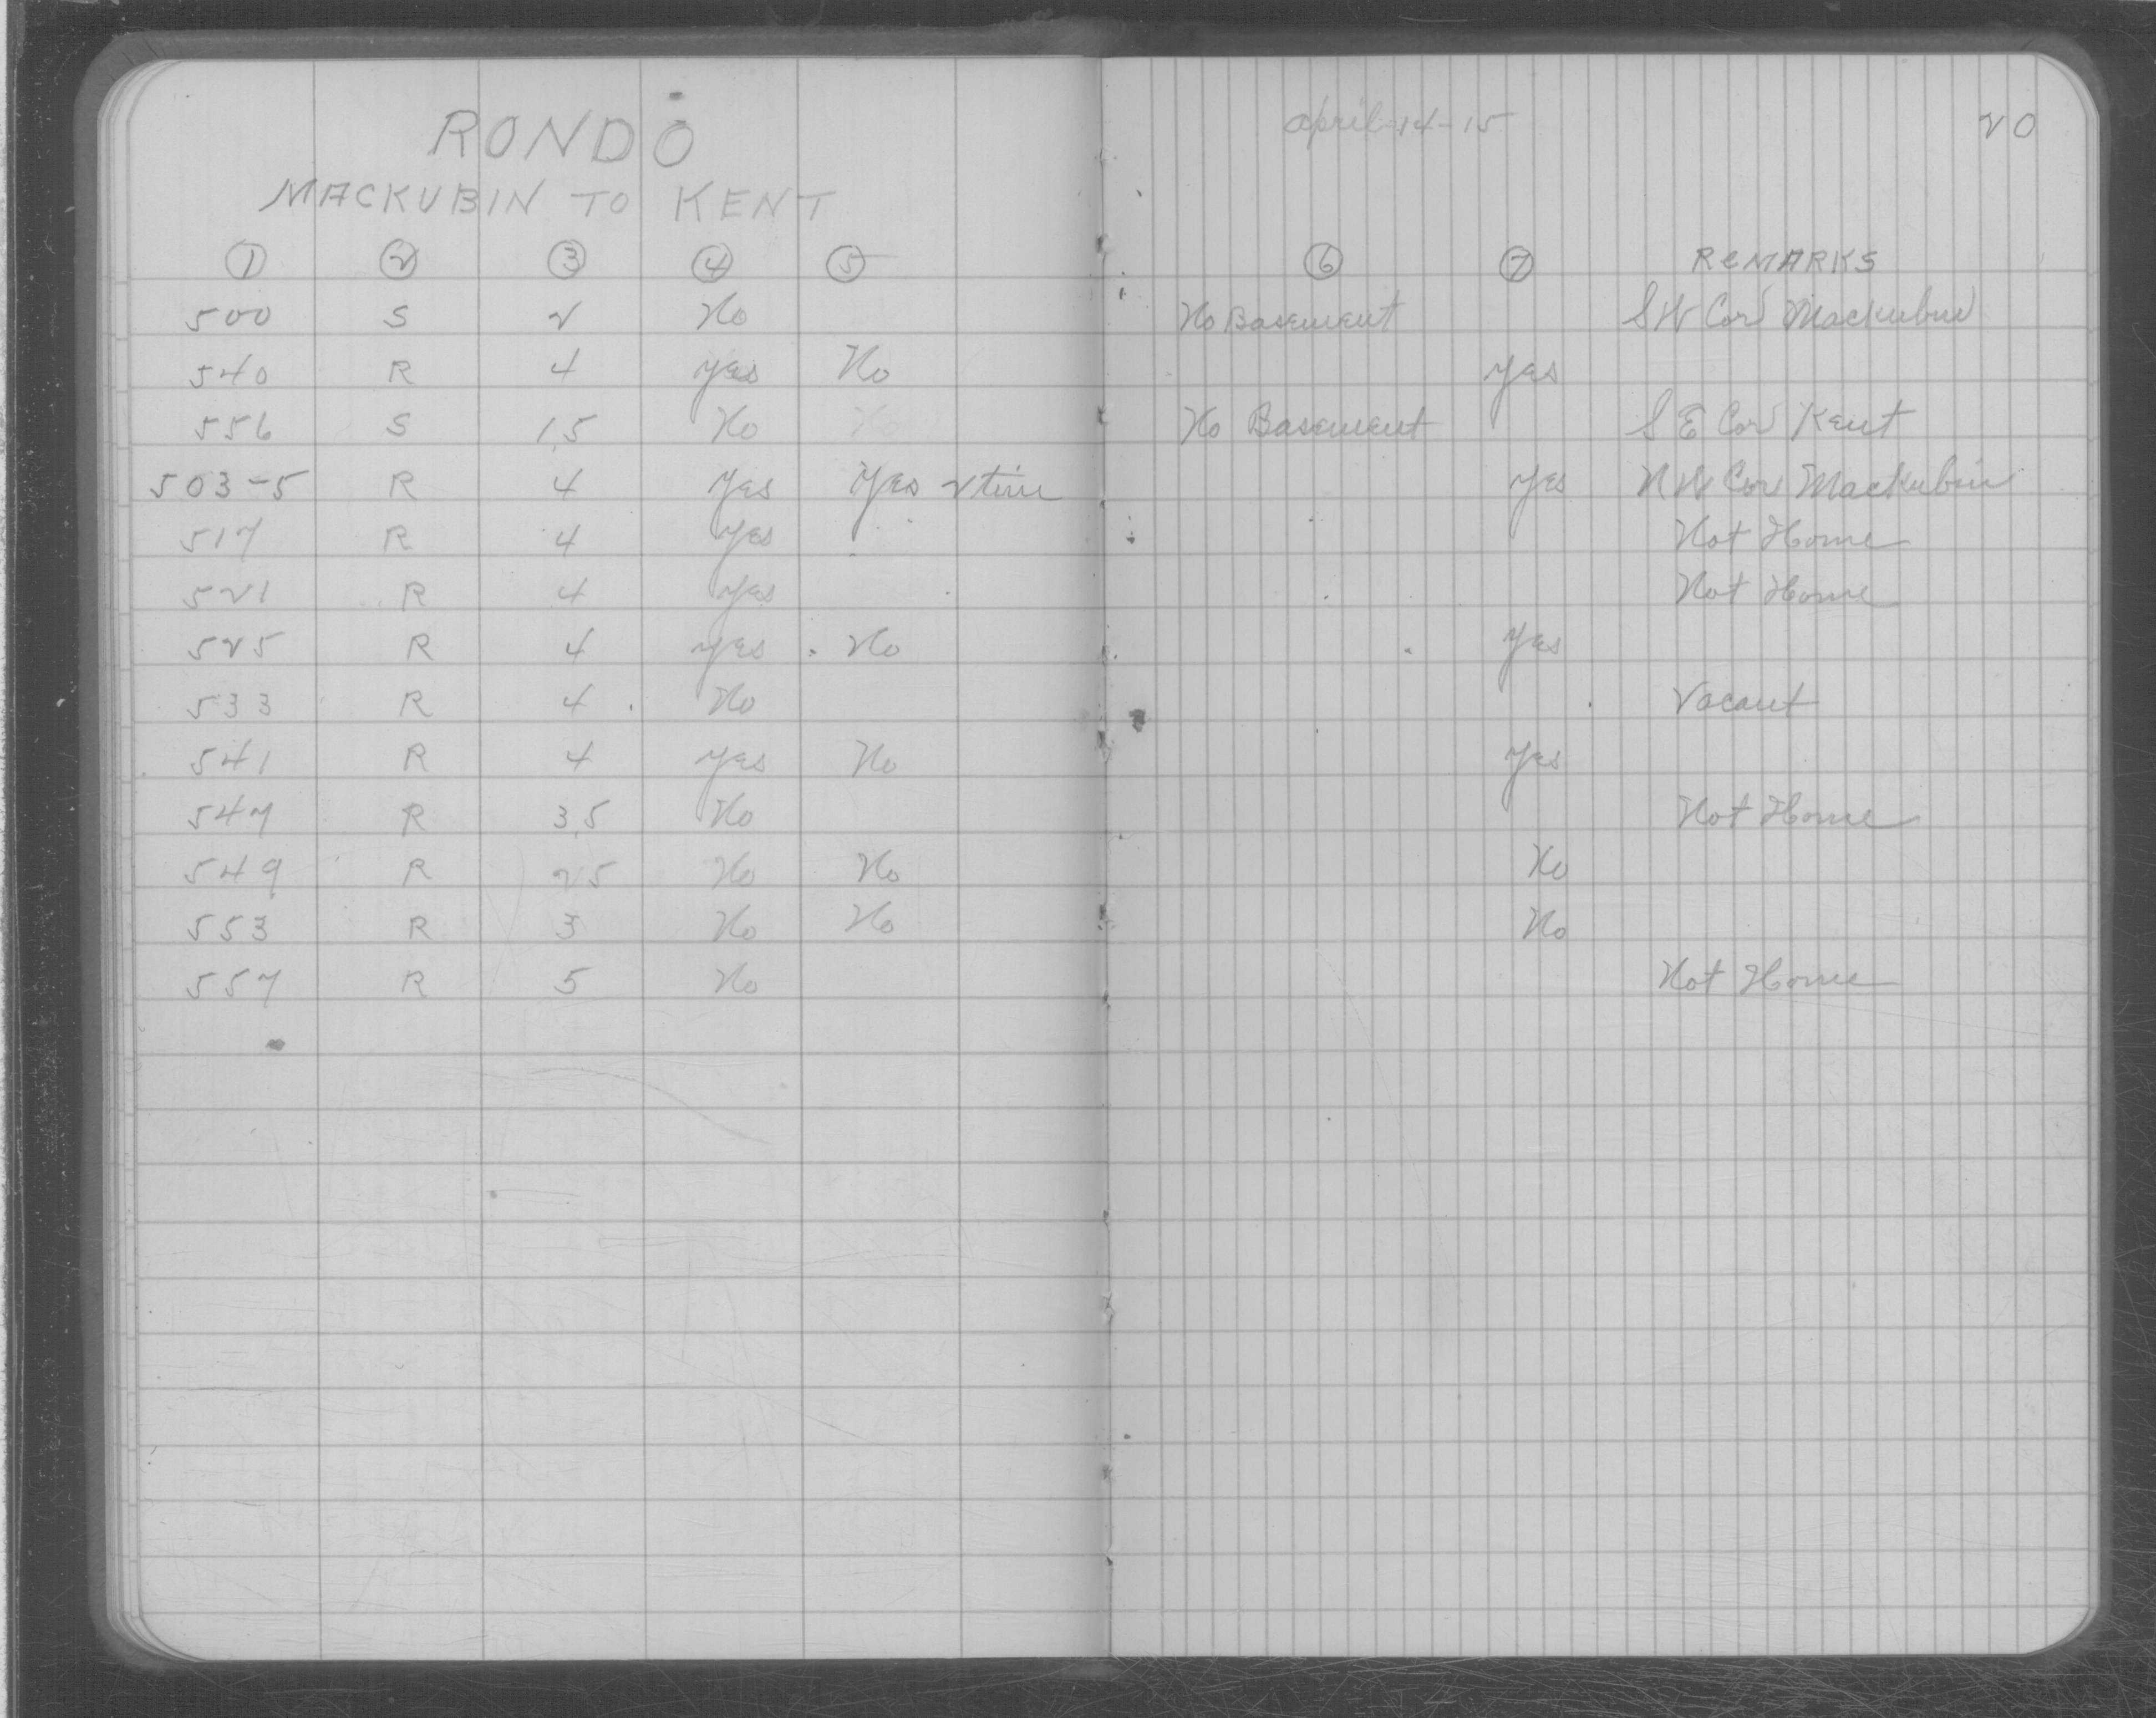 RONDO april-14-15 20
MACKUBIN TO KENT
① ② ③ ④ ⑤ ⑥ ⑦ REMARKS
500 S 2 No No Basement SW Cor Mackubin
540 R 4 yes No yes
556 S 1.5 No No No Basement S E Cor Kent
503-5 R 4 yes yes 2 time yes N W Cor Mackubin
517 R 4 yes Not Home
521 R 4 yes Not Home
525 R 4 yes No yes
533 R 4 No Vacant
541 R 4 yes No yes
547 R 3.5 No Not Home
549 R 2.5 No No No
553 R 3 No No No
557 R 5 No Not Home